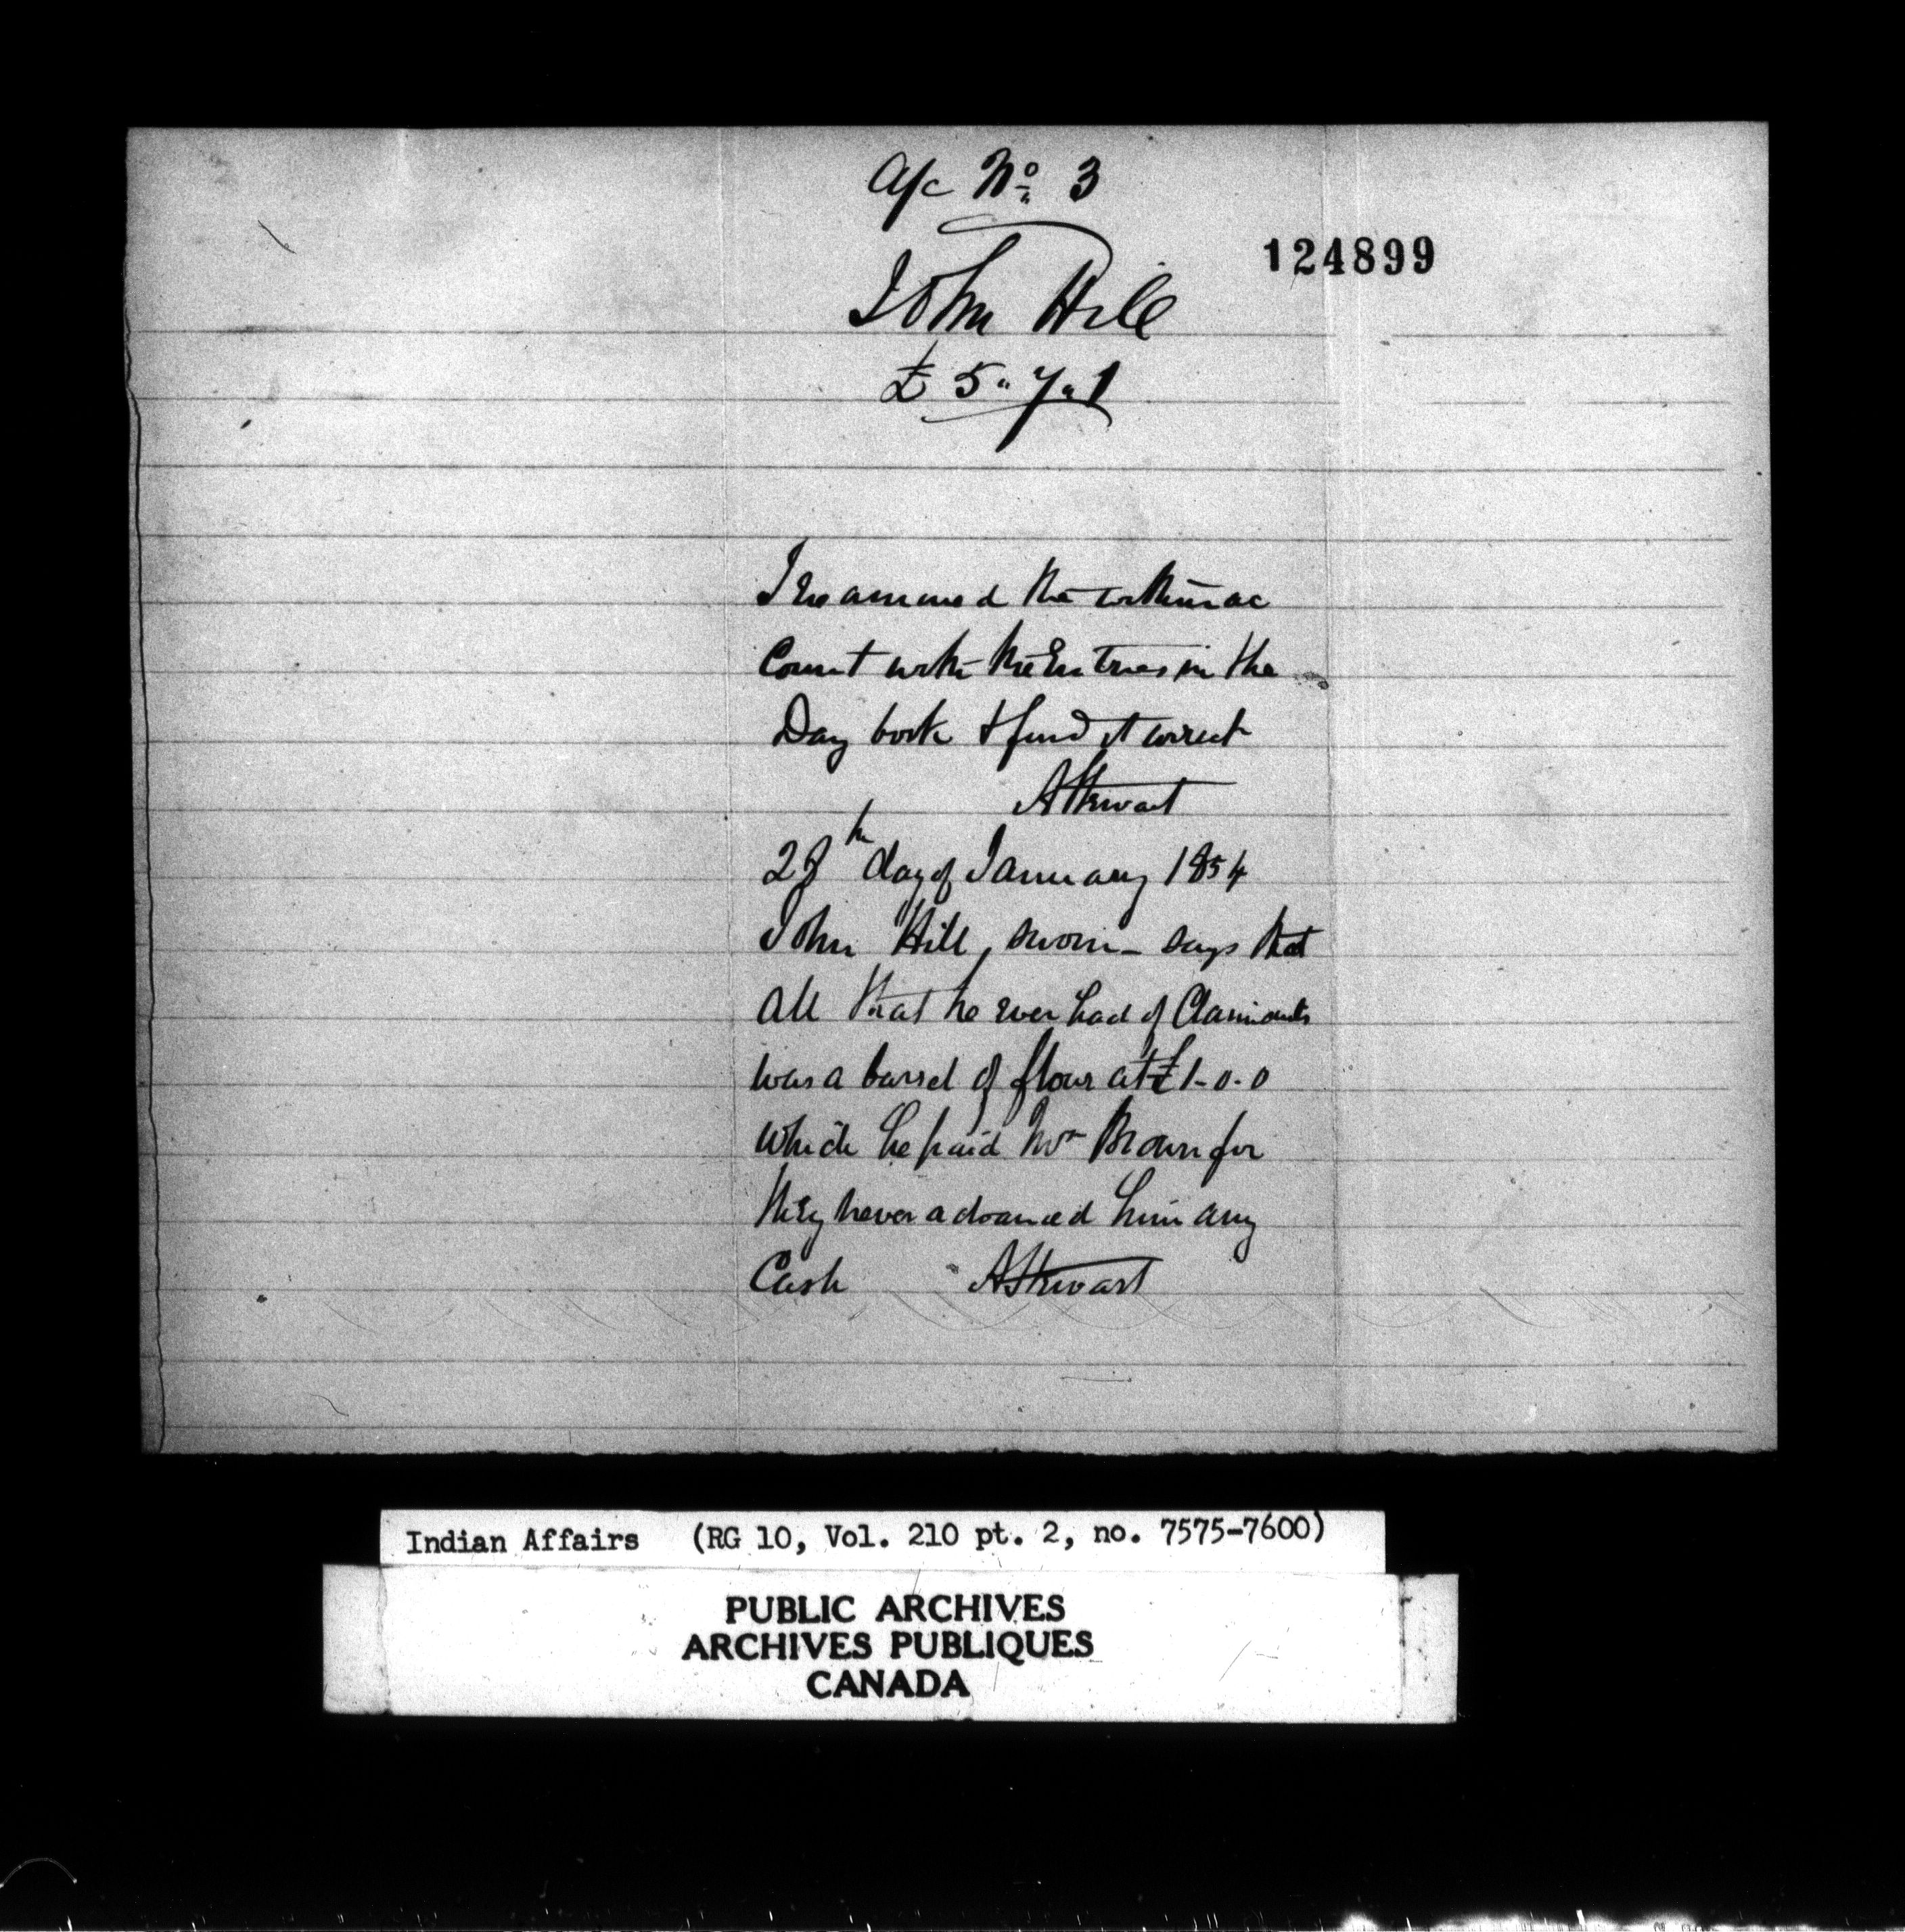 a/c No. 3
124899
John Hill
£ 5 " 7 " 1
I Examined the within ac
Count with the Entries in the
Day book & find it correct
A Stewart
28th day of January 1854
John Hill, sworn - says that
all that he ever had of Claimants
was a barrel of flour at £1-0-0
which he paid Mr Brown for
they never advanced him any
Cash A Stewart
Indian Affairs (RG 10, Vol. 210 pt. 2, no. 7575-7600)
PUBLIC ARCHIVES
ARCHIVES PUBLIQUES
CANADA